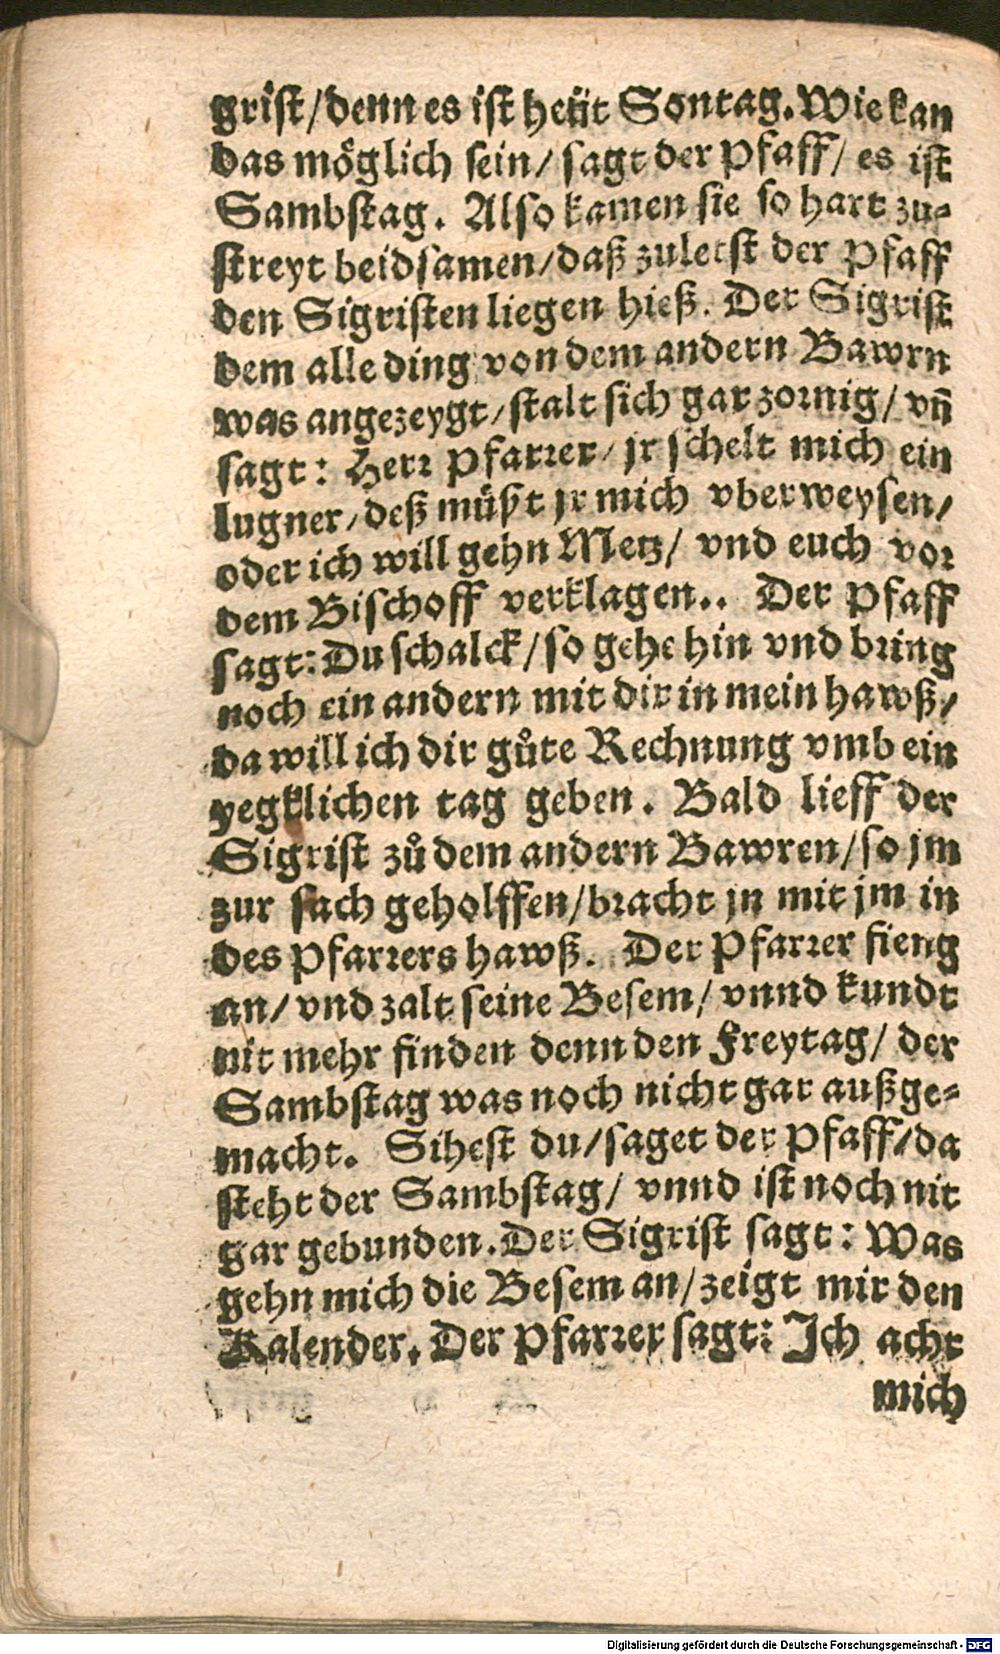 grist/denn es ist heüt Sontag. Wie kan
das möglich sein/ sagt der Pfaff/ es ist
Sambstag. Also kamen sie so hart zu-
streyt beidsamen/daß zuletst der Pfaff
den Sigristen liegen hieß. Der Sigrist
dem alle ding von dem andern Bawrn
was angezeygt/stalt sich gar zornig/ vñ
sagt: Herr Pfarrer/ jr schelt mich ein
lugner/deß müßt jr mich vberweysen/
oder ich will gehn Metz/ vnd euch vor
dem Bischoff verklagen.. Der Pfaff
sagt: Du schalck/so gehe hin vnd bring
noch ein andern mit dir in mein hawß/
da will ich dir gůte Rechnung vmb ein
yegklichen tag geben. Bald lieff der
Sigrist zů dem andern Bawren/so jm
zur sach geholffen/bracht jn mit jm in
des Pfarrers hawß. Der Pfarrer fieng
an/ vnd zalt seine Besem/ vnnd kundt
nit mehr finden denn den Freytag/ der
Sambstag was noch nicht gar außge-
macht. Sihest du/saget der Pfaff/da
steht der Sambstag/ vnnd ist noch nit
gar gebunden. Der Sigrist sagt: Was
gehn mich die Besem an/zeigt mir den
Kalender. Der Pfarrer sagt: Ich acht
mich
Digitalisierung gefördert durch die Deutsche Forschungsgemeinschaft - DFG